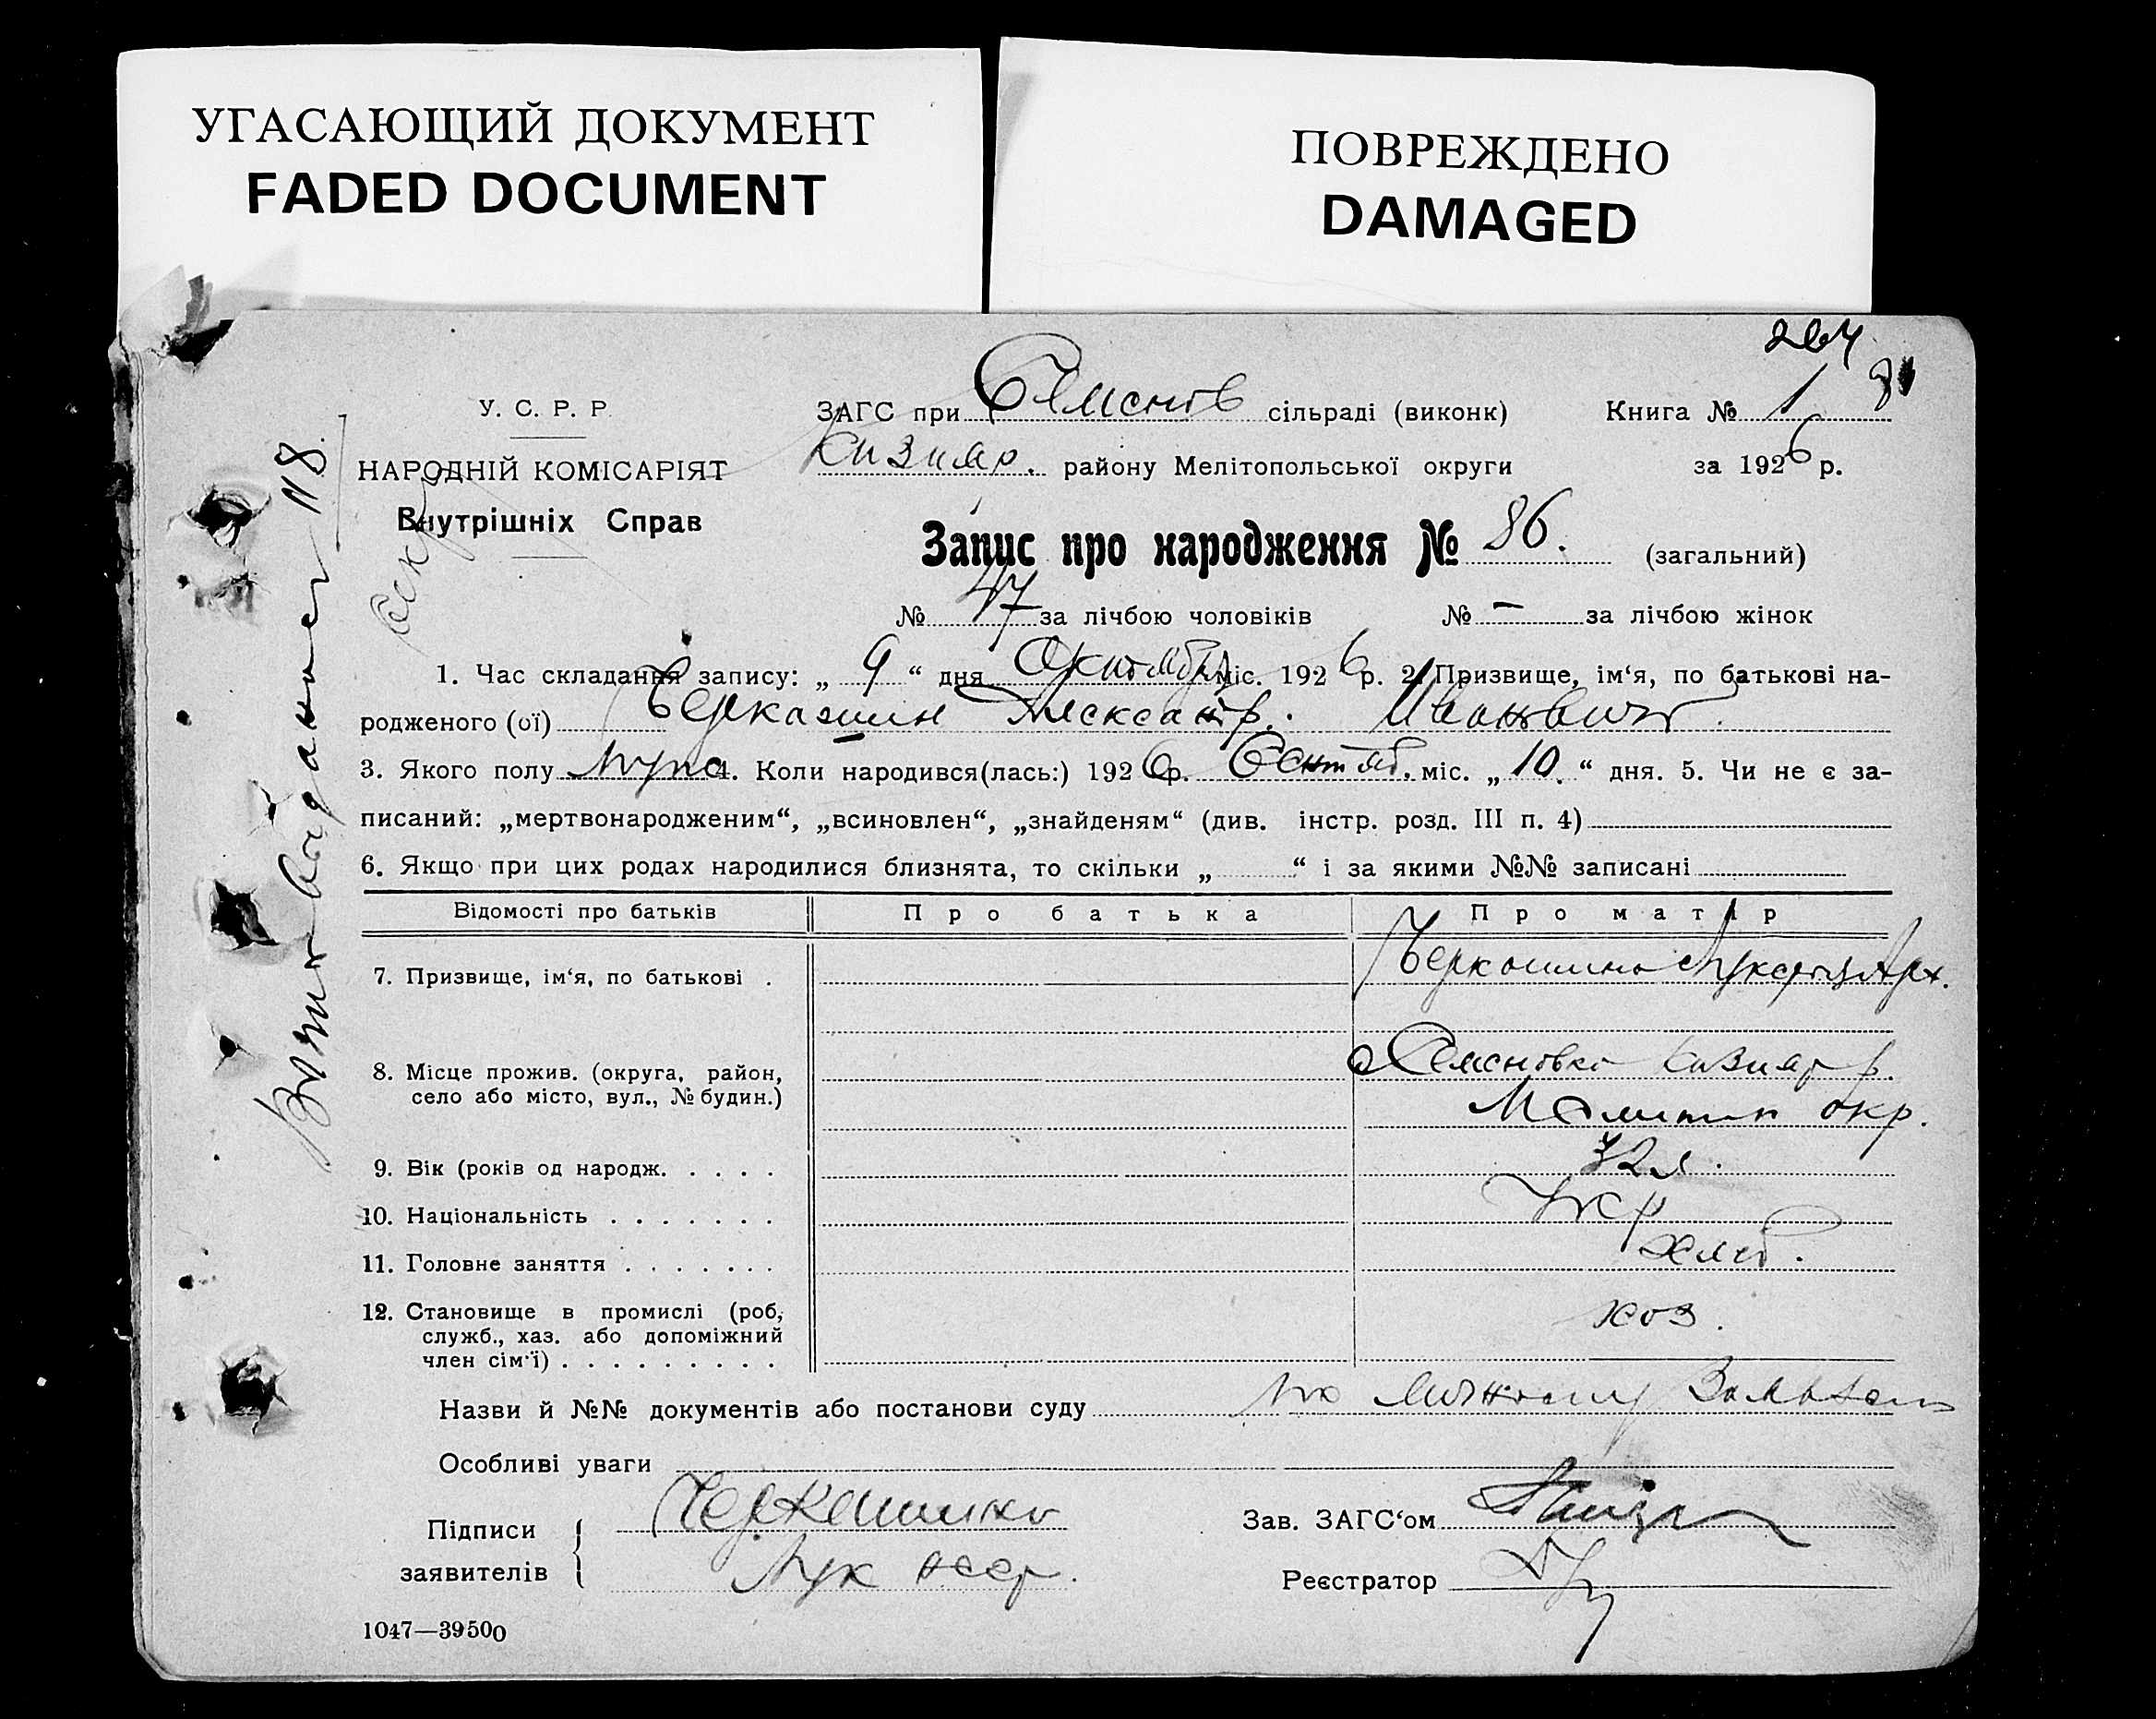 УГАСАЮЩИЙ ДОКУМЕНТ
FADED DOCUMENT
ПОВРЕЖДЕНО
DAMAGED
264
У. С. Р. Р.
НАРОДНІЙ КОМІСАРІЯТ
Внутрішніх Справ
ЗАГС при Семенов сільраді (виконк)
Книга № 1
Кизияр. району Мелітопольської округи
за 1926 р.
Запис про народження № 86. (загальний)
№ 47 за лічбою чоловіків № — за лічбою жінок
1. Час складання запису: „ 9 “ дня Октября міс. 1926 р. 2. Призвище, ім‘я, по батькові на-
родженого (ої) Черкашин Александр. Иванович.
3. Якого полу муж 4. Коли народився(лась:) 1926 р. Сентяб. міс. „ 10. “ дня. 5. Чи не є за-
писаний: „мертвонародженим“, „всиновлен“, „знайденям“ (див. інстр. розд. III п. 4)
6. Якщо при цих родах народилися близнята, то скільки „ “ і за якими №№ записані
Відомості про батьків
Про батька
Про матір
7. Призвище, ім‘я, по батькові .
Черкашина Арх.
8. Місце прожив. (округа, район,
село або місто, вул., № будин.)
с Семеновка Кизияр р.
Мелитоп окр.
9. Вік (років од народж. . . . .
32 л.
10. Національність . . . . . . .
Укр
11. Головне заняття . . . . . . .
хлеб.
12. Становище в промислі (роб,
служб., хаз. або допоміжний
член сім‘ї) . . . . . . . . .
хоз.
Назви й №№ документів або постанови суду по личному
Особливі уваги
Підписи
заявителів
Черкашина
Зав. ЗАГС‘ом
Реєстратор
1047—39500